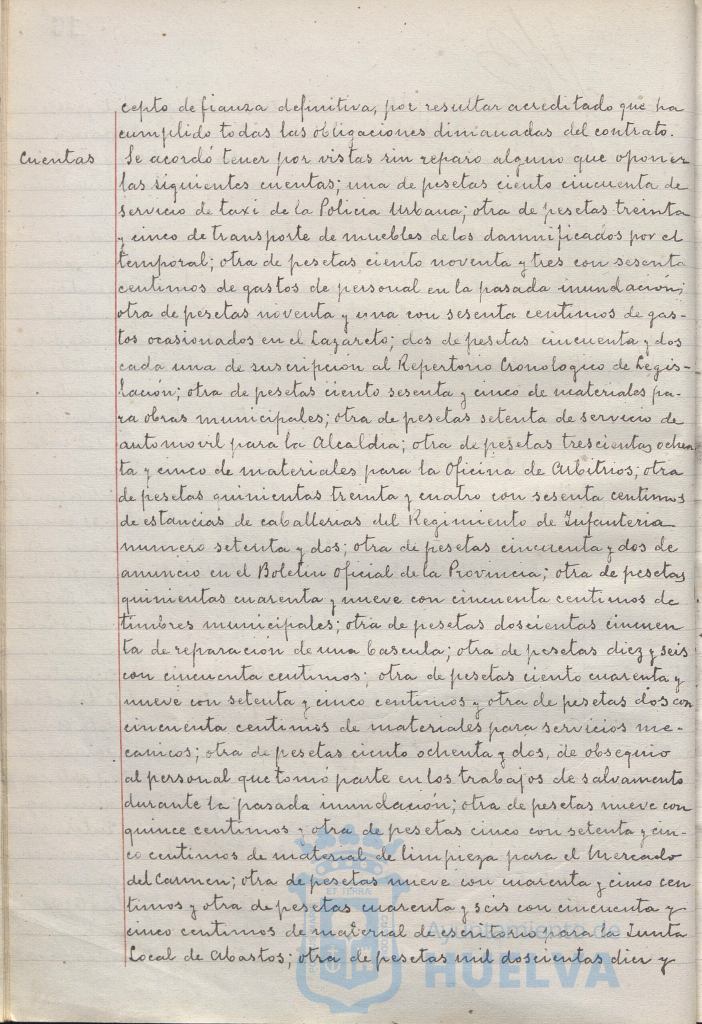 cepto de fianza definitiva, por resultar acreditado que ha
cumplido todas las obligaciones dimanadas del contrato.
Cuentas Se acordó tener por vistas sin reparo alguno que oponer
las siguientes cuentas; una de pesetas ciento cincuenta de
servicio de taxi de la Policia Urbana; otra de pesetas treinta
y cinco de transporte de muebles de los damnificados por el
temporal; otra de pesetas ciento noventa y tres con sesenta
centimos de gastos de personal en la pasada inundación;
otra de pesetas noventa y una con sesenta centimos de gas-
tos ocasionados en el Lazareto; dos de pesetas cincuenta y dos
cada una de suscripción al Repertorio Cronologico de Legis-
lación; otra de pesetas ciento sesenta y cinco de materiales pa-
ra obras municipales; otra de pesetas setenta de servicio de
automovil para la Alcaldia; otra de pesetas trescientas ochen
ta y cinco de materiales para la Oficina de Arbitrios; otra
de pesetas quinientas treinta y cuatro con sesenta centimos
de estancias de caballerias del Regimiento de Infanteria
numero setenta y dos; otra de pesetas cincuenta y dos de
anuncio en el Boletin Oficial de la Provincia; otra de pesetas
quinientas cuarenta y nueve con cincuenta centimos de
timbres municipales; otra de pesetas doscientas cincuen
ta de reparación de una bascula; otra de pesetas diez y seis
con cincuenta centimos; otra de pesetas ciento cuarenta y
nueve con setenta y cinco centimos y otra de pesetas dos con
cincuenta centimos de materiales para servicios me-
canicos; otra de pesetas ciento ochenta y dos, de obsequio
al personal que tomó parte en los trabajos de salvamento
durante la pasada inundación; otra de pesetas nueve con
quince centimos y otra de pesetas cinco con setenta y cin-
co centimos de material de limpieza para el Mercado
del Carmen; otra de pesetas nueve con cuarenta y cinco cen
timos y otra de pesetas cuarenta y seis con cincuenta y
cinco centimos de material de escritorio para la Junta
Local de Abastos; otra de pesetas mil doscientas diez y
Ayuntamiento de
HUELVA